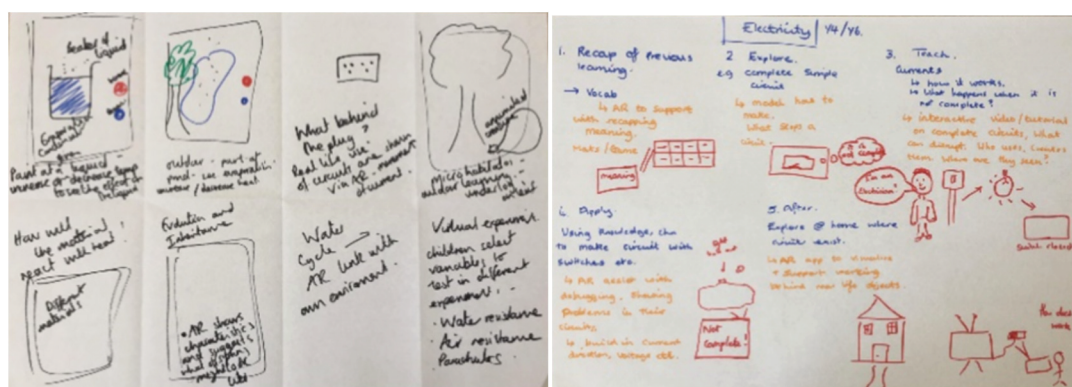 Beaker of liquid
Point at a liquid -
increase or decrease temp
to see the effect on
the liquid
outdoor - part of
pond - see evaporation
increase / decrease heat
What behind
the plug?
Real life use
of circuits are shown
via AR. movement
of current
Microhabitats -
outdoor learning
How will
the material
react with heat?
Different
materials
Evolution and
Inheritance
AR shows
characteristics
and suggests
what offspring
might look
like
Water
Cycle
AR link with
own environment.
Virtual experiments
children select
variables to
test in different
experiments -
· Water resistance
· Air resistance
Parachutes
Electricity Y4/Y6.
1. Recap of previous
learning.
→ Vocab
↳ AR to support
with recapping
meaning.
meaning
2 Explore.
eg complete simple
circuit
↳ model how to
make.
What stops a
3. Teach
Currents
↳ how it works.
↳ What happens when it is
not complete?
↳ interactive video/tutorial
on complete circuits, what
can disrupt.
them. Where are they seen?
I'm an
electrician!
Switch closed
4. Apply
Using knowledge, chn
to make circuit with
switches etc.
↳ AR assist with
debugging, showing
problems in their
circuits
↳ build in current
direction, voltage etc.
Not
complete!
5. After.
Explore @ home where
circuit exist.
↳ AR app to visualise
+ support working
behind real life objects.
How does
work